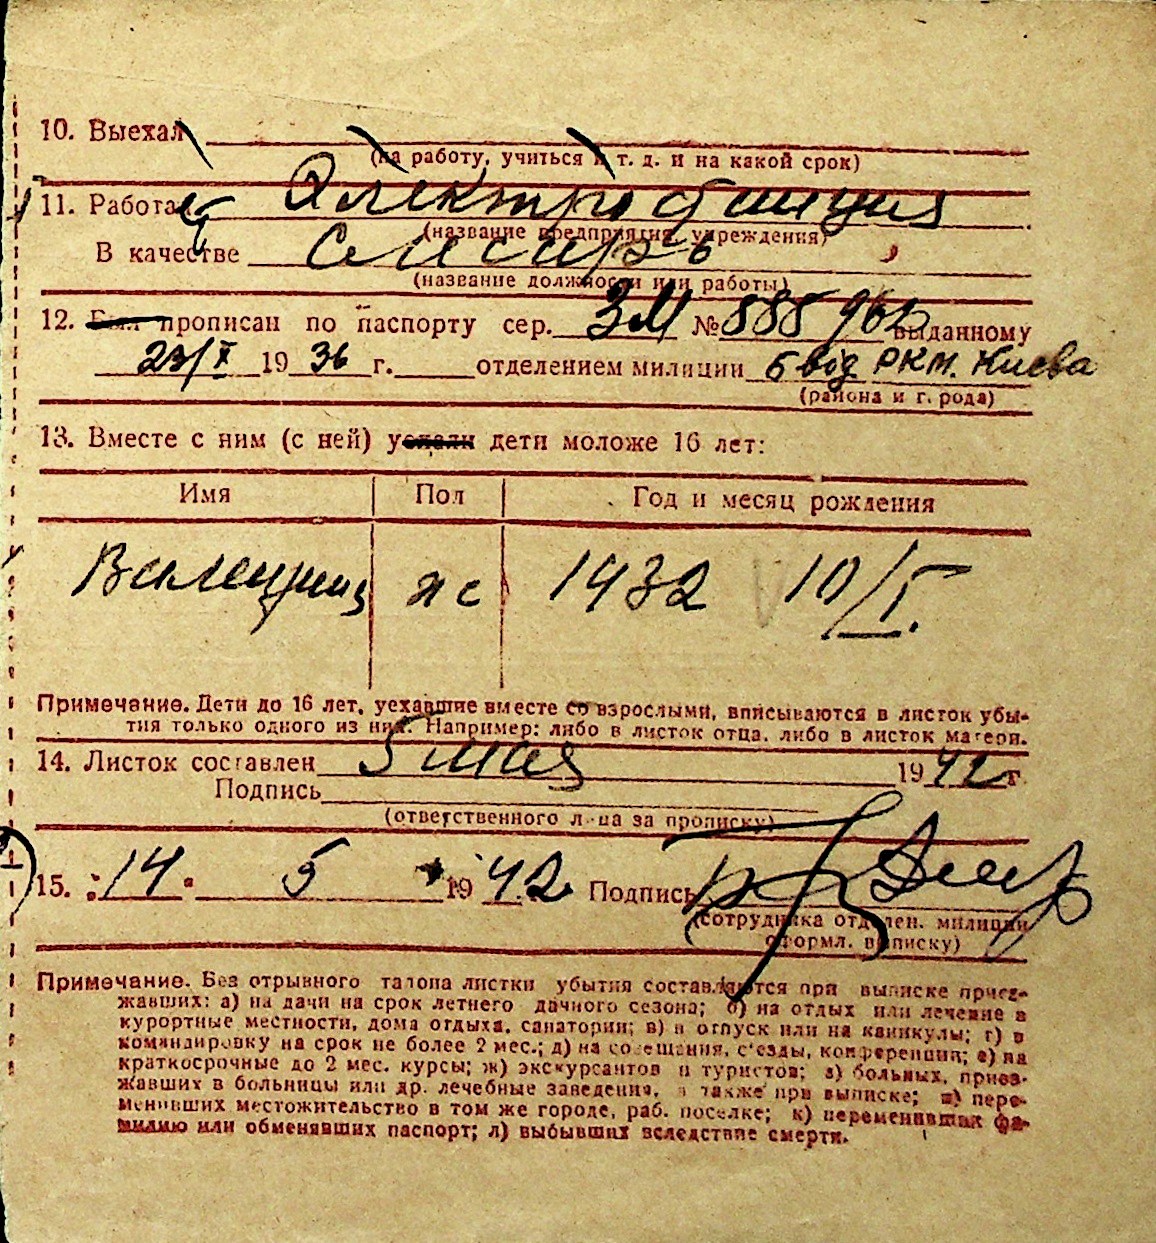 10. Выехал
(на работу, учиться и т. д. и на какой срок)
11. Работает Электростанция
(название предприятия, учреждения)
В качестве слесарь
(название должности или работы)
12. Был прописан по паспорту сер. ЗМ № 885 выданному
23/X 1936 г. отделением милиции 6 вод РКМ. Киева
(района и г. рода)
13. Вместе с ним (с ней) уехали дети моложе 16 лет:
Имя Пол Год и месяц рождения
Валентина ж 1932 10/I.
Примечание. Дети до 16 лет, уехавшие вместе со взрослыми, вписываются в листок убы-
тия только одного из них. Например: либо в листок отца, либо в листок матери.
14. Листок составлен 5 мая 1942 г
Подпись
(ответственного лица за прописку)
15. 14 5 1942 Подпись
(сотрудника отделен. милиции
оформл. выписку)
Примечание. Без отрывного талона листки убытия составляются при выписке приез-
жавших: а) на дачи на срок летнего дачного сезона; б) на отдых или лечение в
курортные местности, дома отдыха, санатории; в) в отпуск или на каникулы; г) в
командировку на срок не более 2 мес.; д) на совещания, съезды, конференции; е) на
краткосрочные до 2 мес. курсы; ж) экскурсантов и туристов; з) больных, приез-
жавших в больницы или др. лечебные заведения, а также при выписке; и) пере-
менивших местожительство в том же городе, раб. поселке; к) переменивших фа-
милию или обменявших паспорт; л) выбывших вследствие смерти.